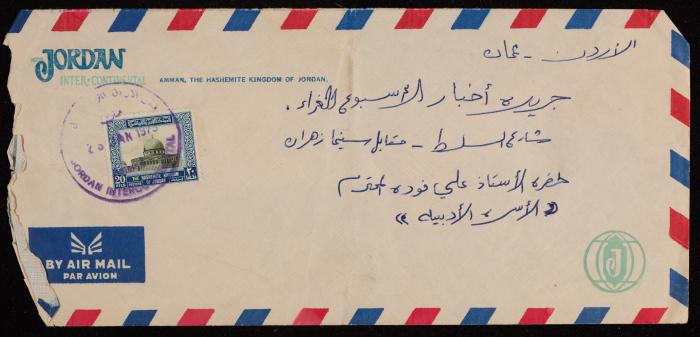 JORDAN
INTER·CONTINENTAL
AMMAN, THE HASHEMITE KINGDOM OF JORDAN.
الاردن - عمان
جريدة أخبار الأسبوع الغراء.
شارع السلط - مقابل سينما زهران
حضرة الأستاذ علي فودة المحترم
«الأسرة الأدبية»
JAN 1975
JORDAN INTERCONTINENTAL
20 FILS
THE HASHEMITE KINGDOM OF JORDAN
٢٠
BY AIR MAIL
PAR AVION
J